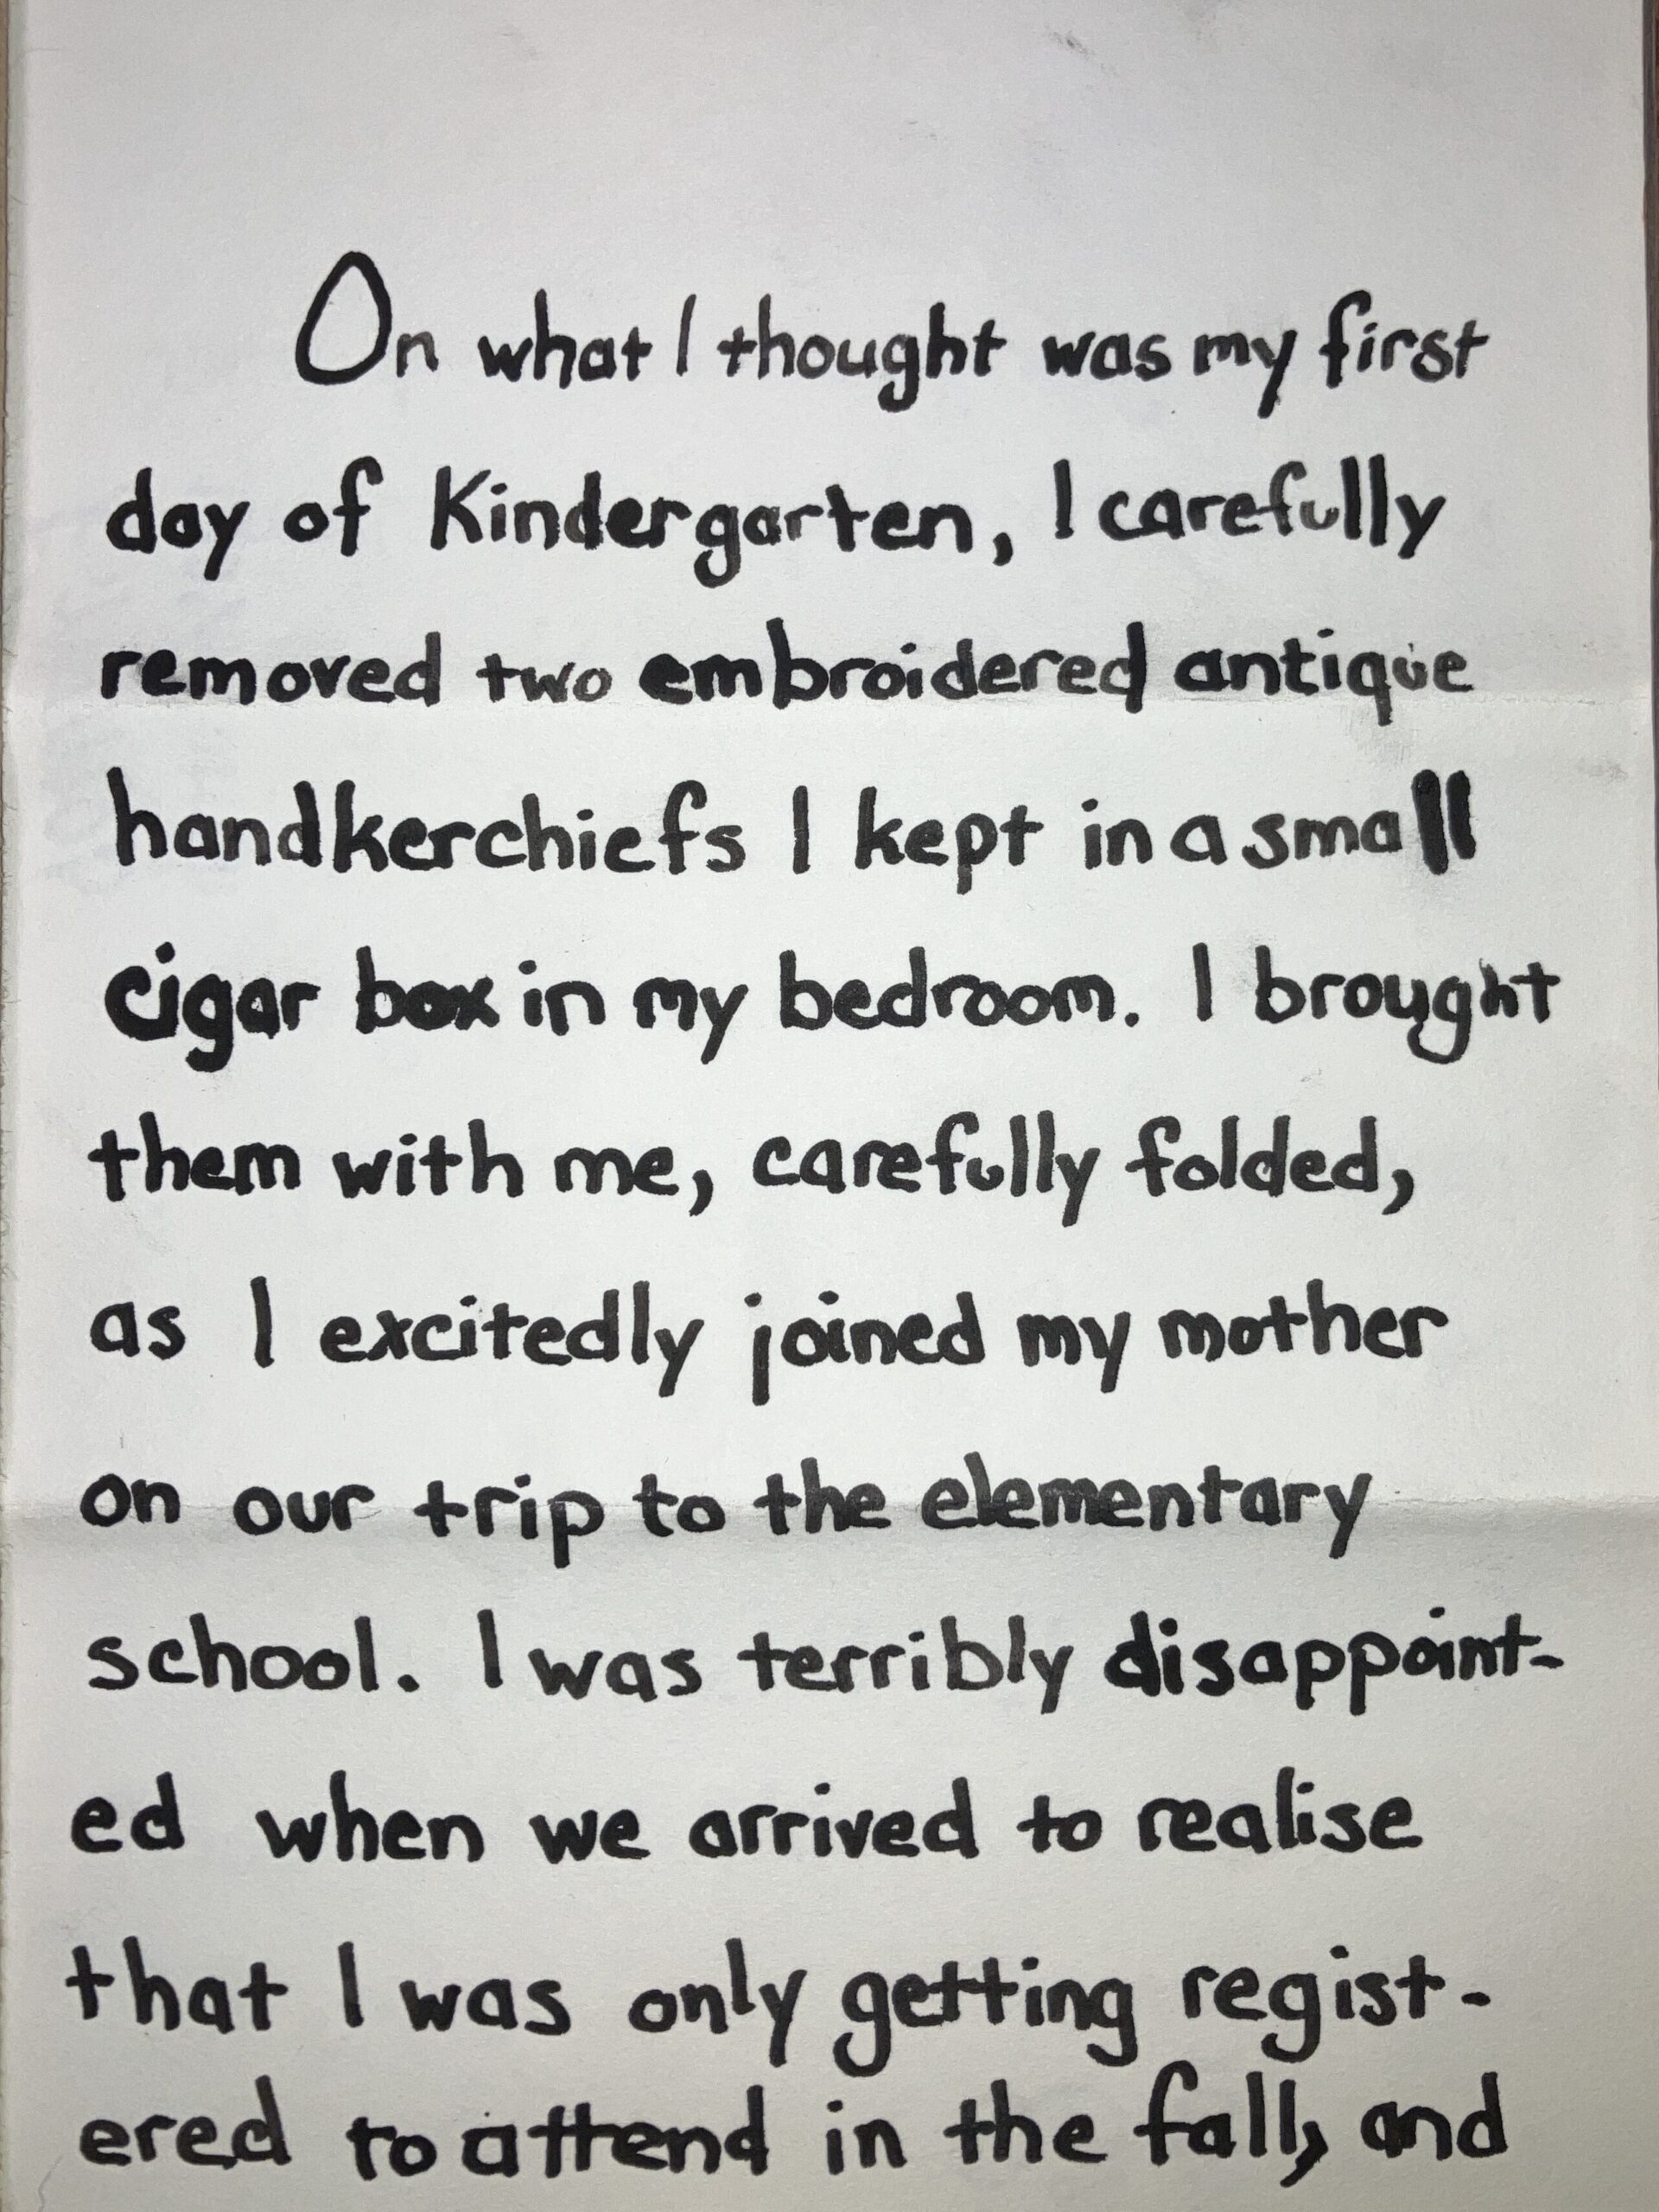 On what I thought was my first
day of Kindergarten, I carefully
removed two embroidered antique
handkerchiefs I kept in a small
cigar box in my bedroom. I brought
them with me, carefully folded,
as I excitedly joined my mother
on our trip to the elementary
school. I was terribly disappoint-
ed when we arrived to realise
that I was only getting regist-
ered to attend in the fall, and